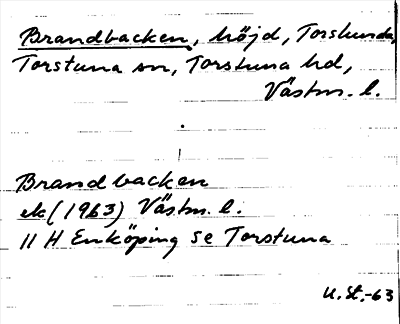 Brandbacken, höjd, Torslunda,
Torstuna sn, Torstuna hd,
Västm. l.
Brandbacken
ek (1963) Västm. l.
11 H Enköping SE Torstuna
U. St. -63